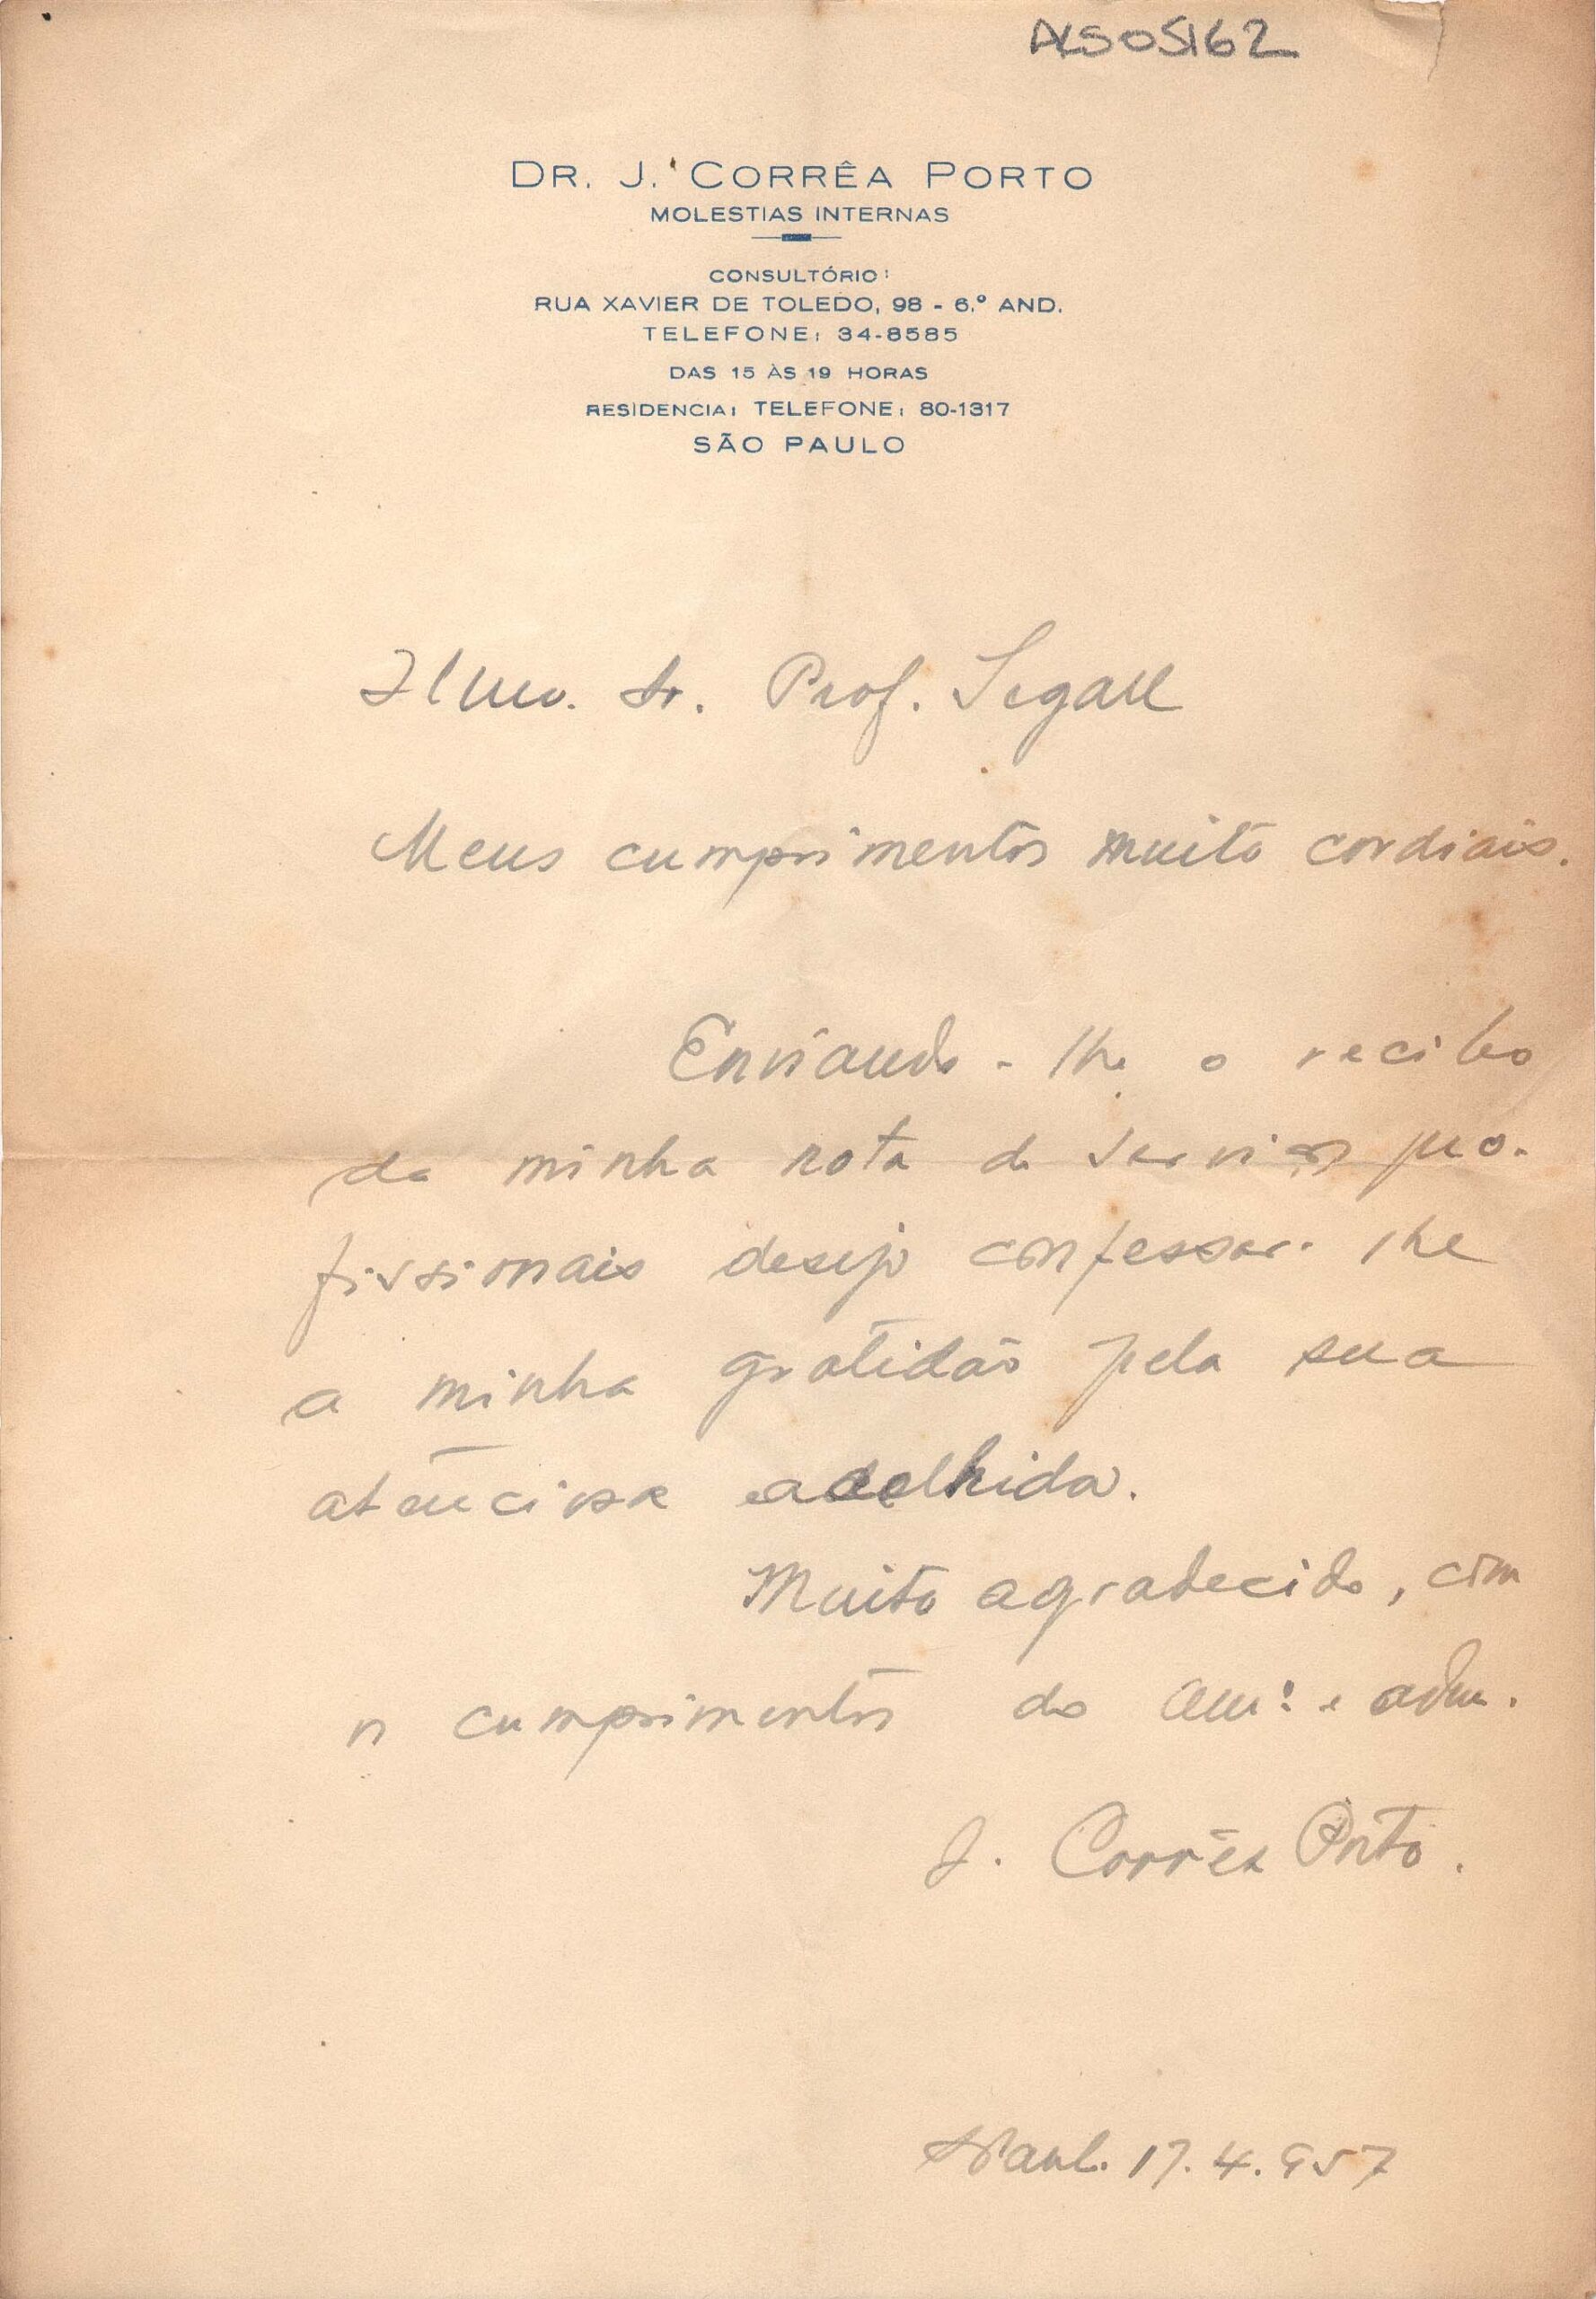 ALS05162
DR. J. CORRÊA PORTO
MOLESTIAS INTERNAS
CONSULTÓRIO:
RUA XAVIER DE TOLEDO, 98 - 6.º AND.
TELEFONE: 34-8585
DAS 15 ÀS 19 HORAS
RESIDENCIA: TELEFONE: 80-1317
SÃO PAULO
Ilmo. Sr. Prof. Segall
Meus cumprimentos muito cordiais.
Enviando-lhe o recibo
da minha nota de serviços pro-
fissionais desejo confessar-lhe
a minha gratidão pela sua
atenciosa acolhida.
Muito agradecido, com
os cumprimentos do am.º e adm.
J. Corrêa Porto.
S. Paul. 17.4.957